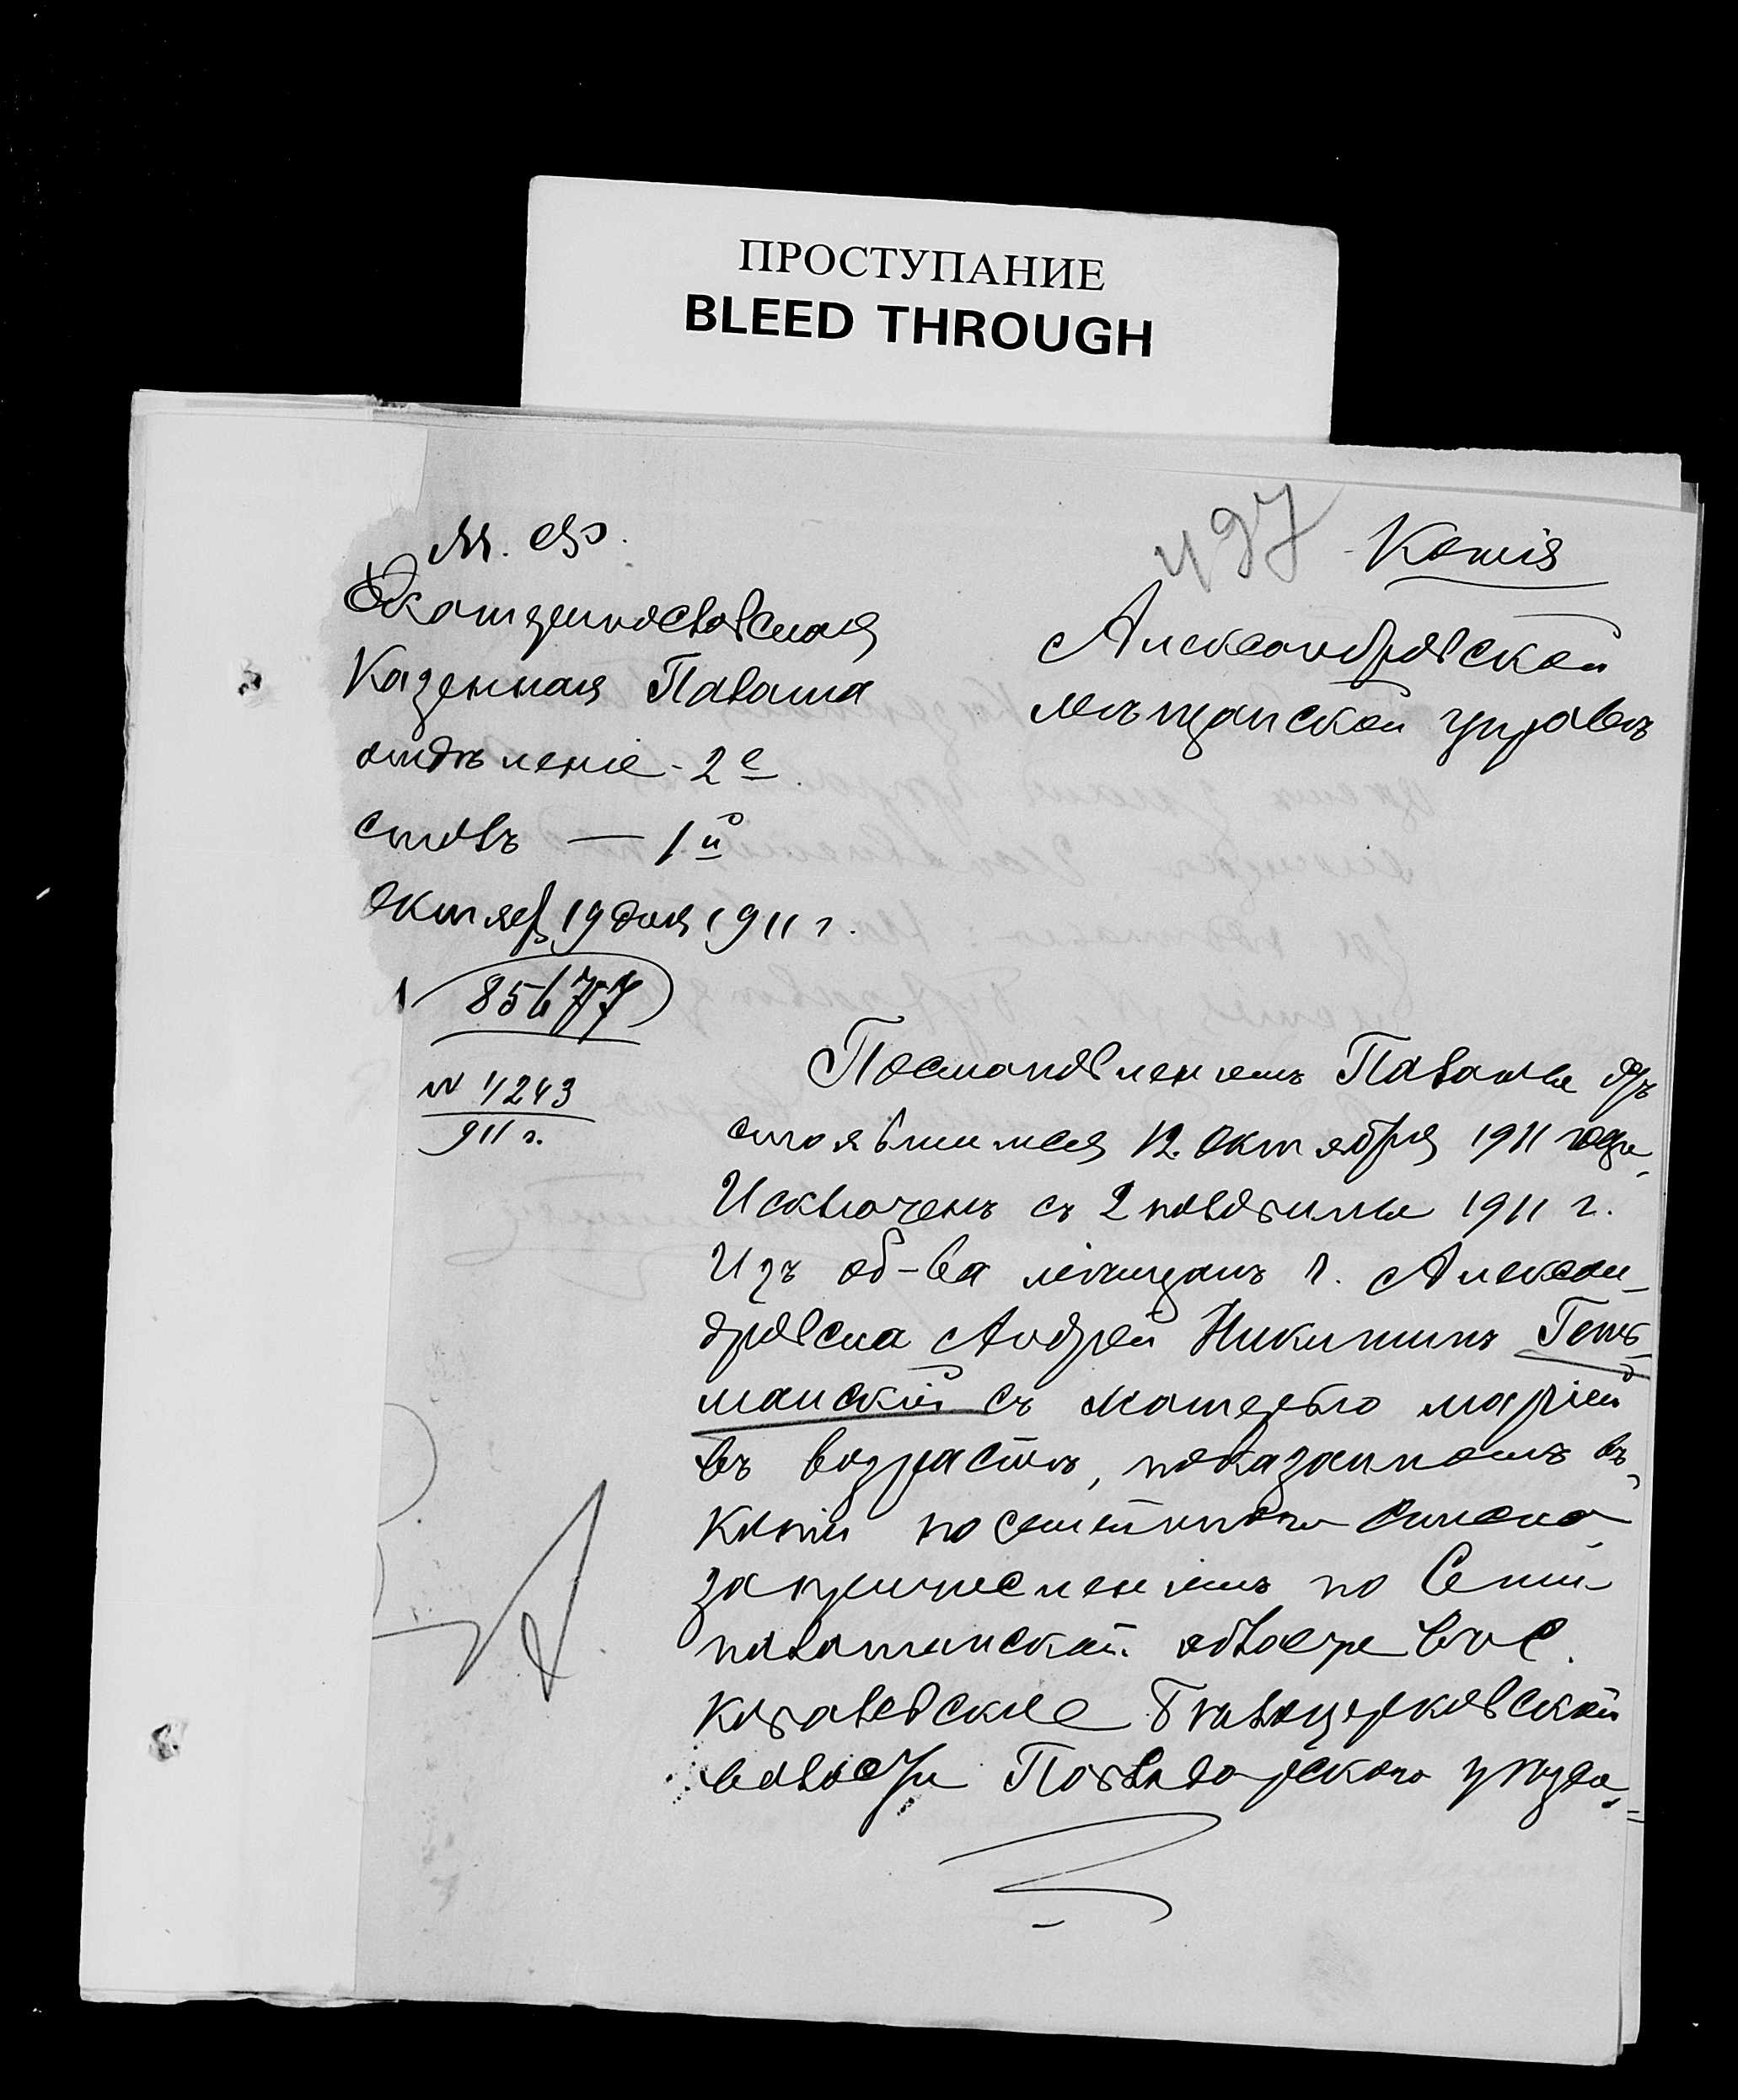 ПРОСТУПАНИЕ
BLEED THROUGH
497
Копія
М. Ф.
Екатеринославская
Казенная Палата
отдѣленіе - 2е
столъ — 1й
Октяб. 19 дня 1911 г.
85677
№ 4243
911 г.
Александровской
мѣщанской управѣ
Постановленіемъ Палаты
стоявшимся 12 октября 1911 года,
Исключенъ съ 2 половины 1911 г.
Изъ об-ва мѣщанъ г. Алексан-
дровска Андрей Никитинъ Геть-
манскій съ матерью Маріей
въ возрастѣ, показанномъ въ
копіи посемейнаго списка,
за причисленіемъ по Семи-
палатинской области въ с.
Бѣлоцерковской
волости Павлодарскаго уѣзда.